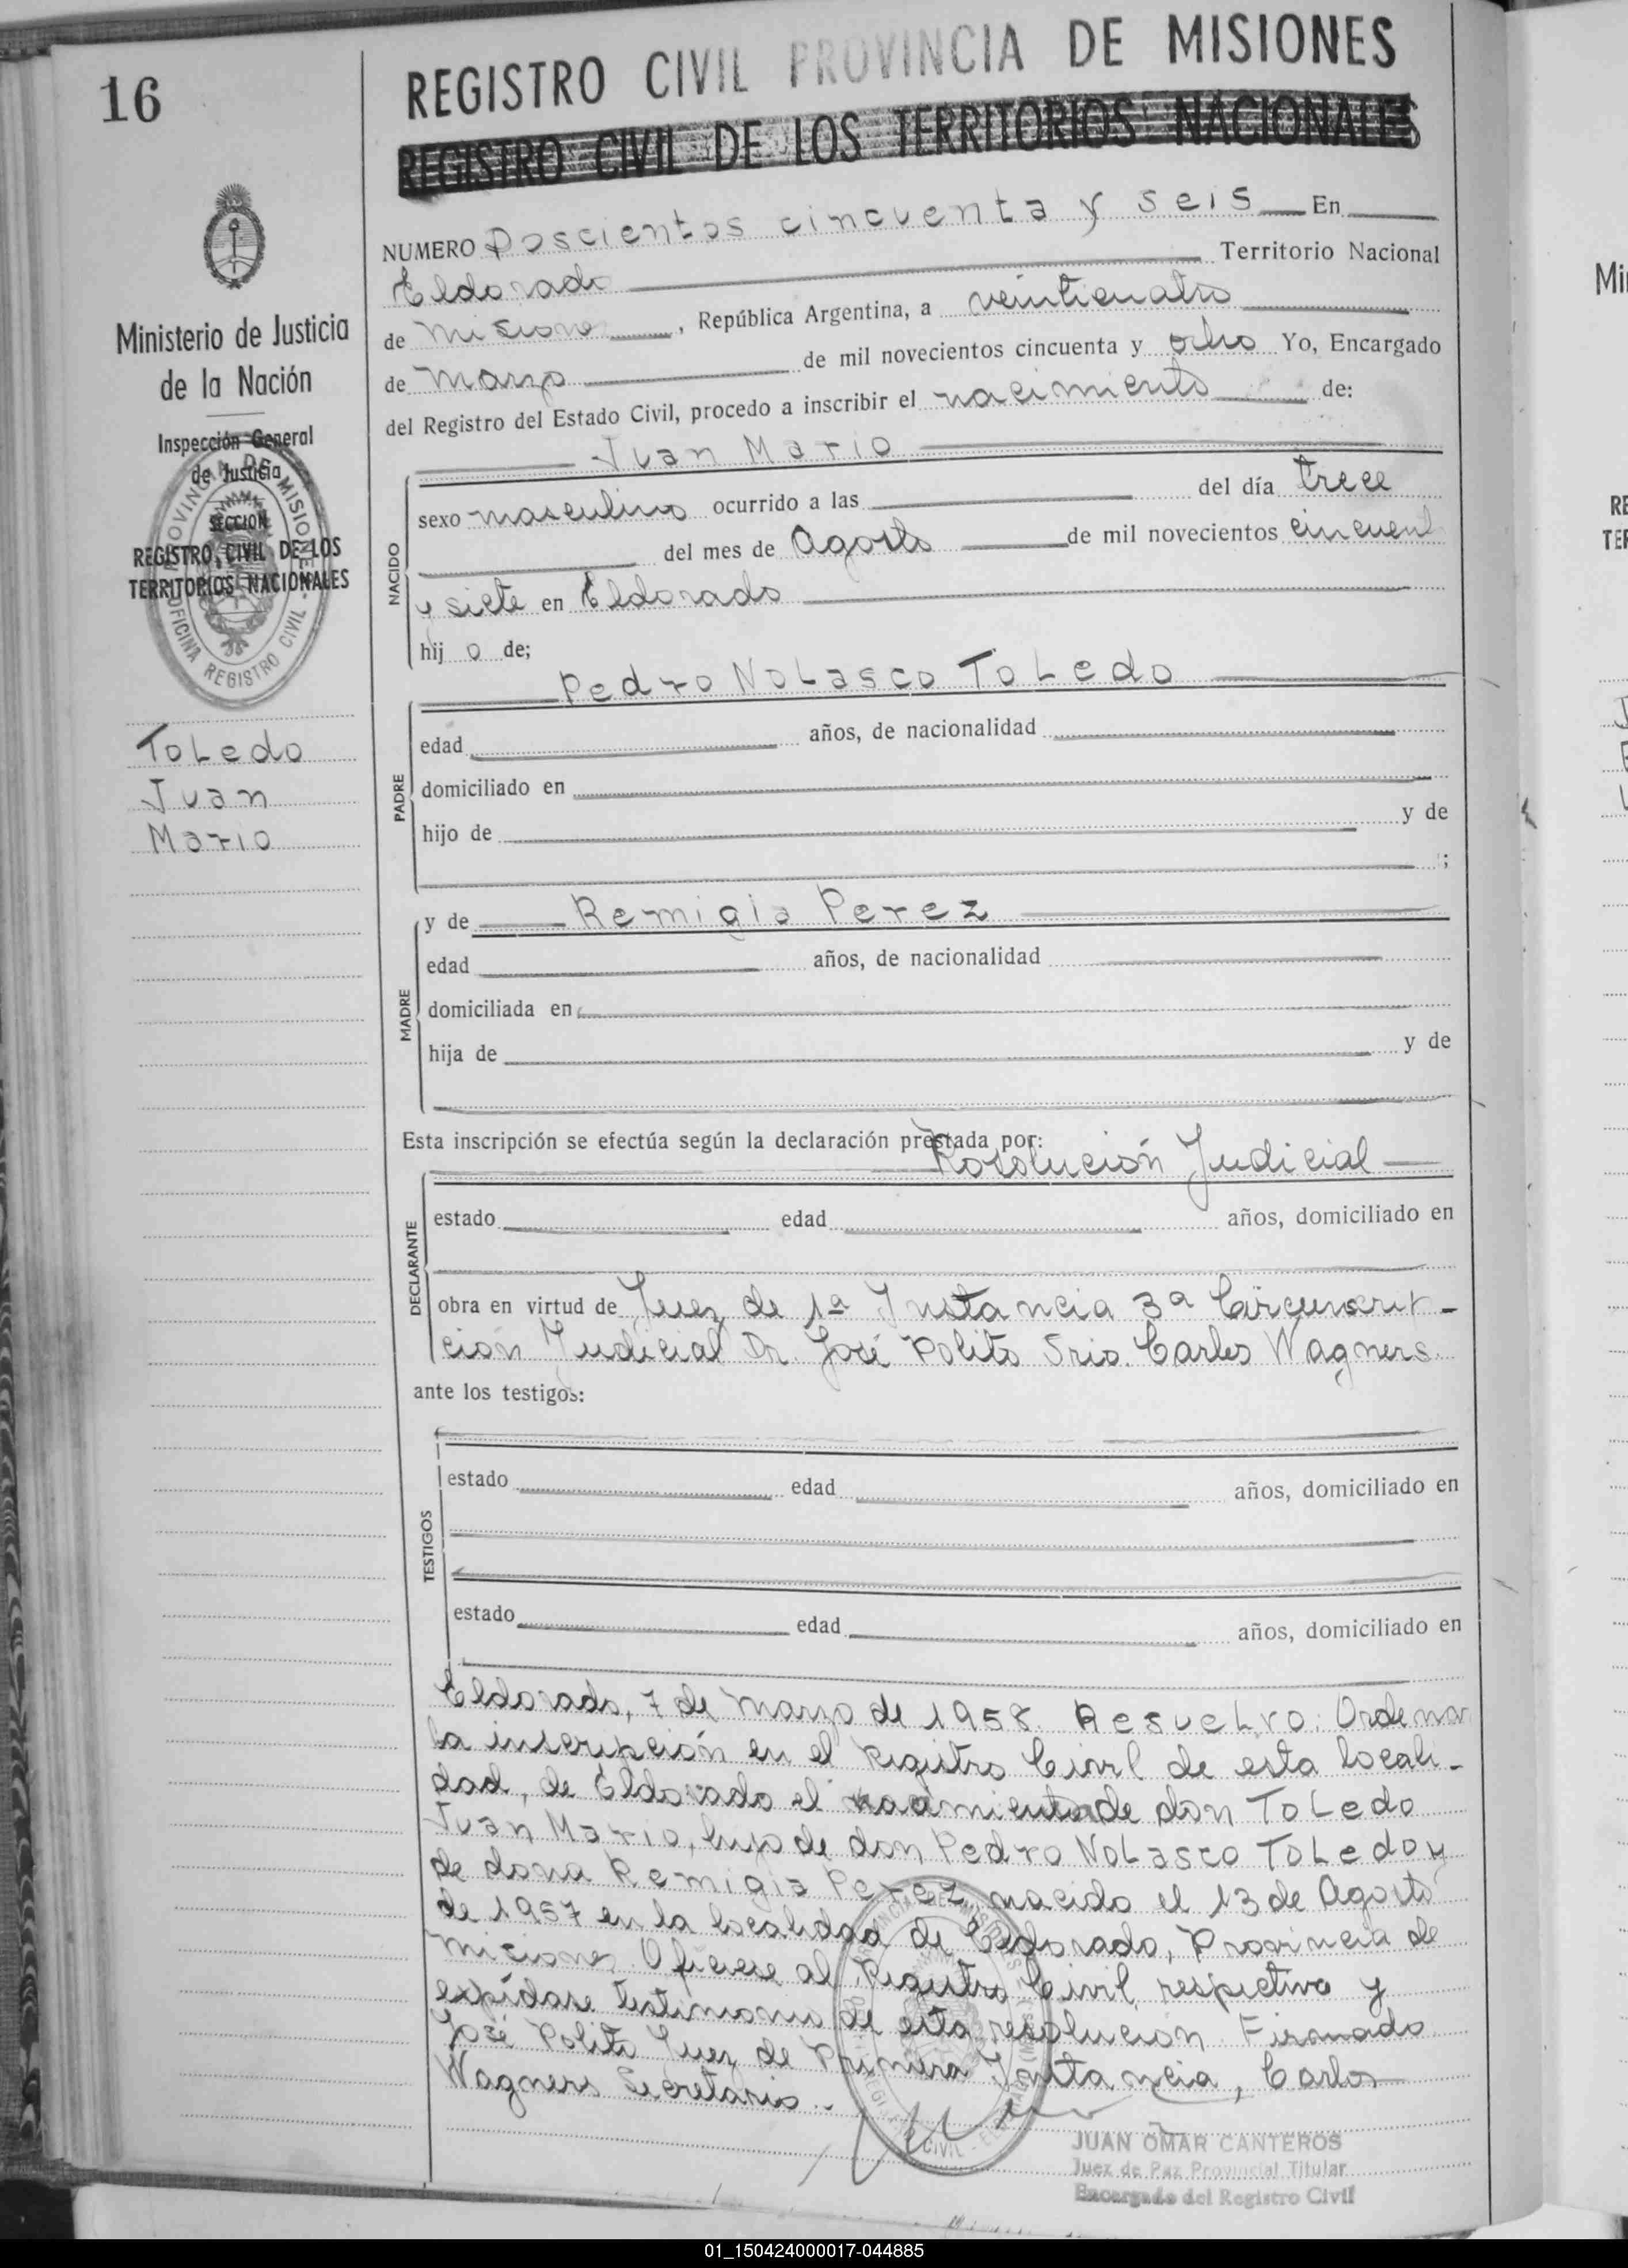 16
REGISTRO CIVIL PROVINCIA DE MISIONES
REGISTRO CIVIL DE LOS TERRITORIOS NACIONALES
Ministerio de Justicia
de la Nación
Inspección General
de Justicia
SECCION
REGISTRO CIVIL DE LOS
TERRITORIOS NACIONALES
PROVINCIA DE MISIONES
OFICINA REGISTRO CIVIL
Toledo
Juan
Mario
NUMERO Doscientos cincuenta y seis En
Eldorado Territorio Nacional
de Misiones, República Argentina, a veinticuatro
de Marzo de mil novecientos cincuenta y ocho Yo, Encargado
del Registro del Estado Civil, procedo a inscribir el nacimiento de:
Juan Mario
NACIDO
sexo masculino ocurrido a las del día trece
del mes de Agosto de mil novecientos cincuent
y siete en Eldorado
hij o de;
Pedro Nolasco Toledo
PADRE
edad años, de nacionalidad
domiciliado en
hijo de y de
;
y de Remigia Perez
MADRE
edad años, de nacionalidad
domiciliada en
hija de y de
Esta inscripción se efectúa según la declaración prestada por:
Resolución Judicial
DECLARANTE
estado edad años, domiciliado en
obra en virtud de Juez de 1a Instancia 3a Circunscrip-
ción Judicial Dr. José Polito Srio. Carlos Wagners
ante los testigos:
TESTIGOS
estado edad años, domiciliado en
estado edad años, domiciliado en
Eldorado, 7 de Marzo de 1958. Resuelvo: Ordenar
la inscripción en el Registro Civil de esta locali-
dad, de Eldorado el nacimiento de don Toledo
Juan Mario, hijo de don Pedro Nolasco Toledo y
de dona Remigia Perez, nacido el 13 de Agosto
de 1957 en la localidad de Eldorado, Provincia de
Misiones. Ofíciese al Registro Civil respectivo y
expídase testimonio de esta resolución. Firmado
José Polito Juez de Primera Instancia, Carlos
Wagners Secretario.
JUAN OMAR CANTEROS
Juez de Paz Provincial Titular
Encargado del Registro Civil
01_150424000017-044885